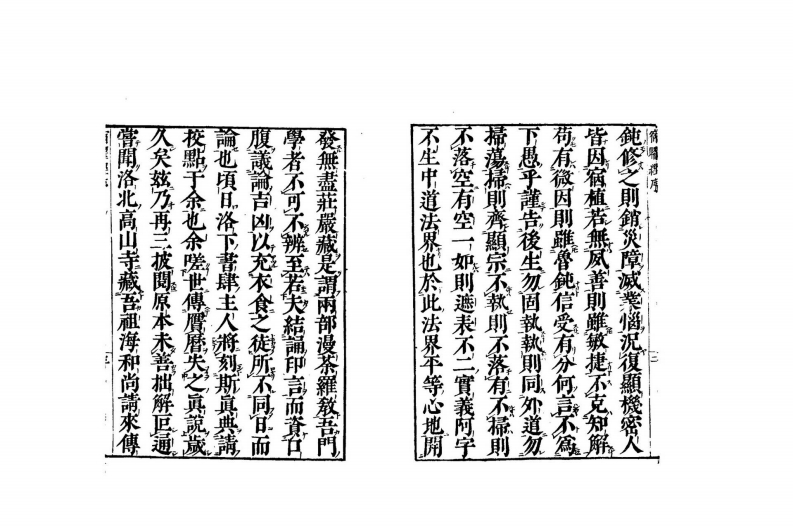 鈍修之則銷災障滅業惱況復顯機密人
皆因宿植若無夙善則雖敏捷不克知解
苟有微因則雖魯鈍信受有分何言不為
下愚乎謹告後生勿固執執則同外道勿
掃蕩掃則齊顯宗不執則不落有不掃則
不落空有空一如則遮表不二實義阿字
不生中道法界也於此法界平等心地開
發無盡莊嚴藏是謂兩部漫荼羅敎吾門
學者不可不辨至若夫結誦印言而資口
腹議論吉凶以充衣食之徒所不同日而
論也頃日洛下書肆主人將刻斯眞典請
校點于余也余嗟世傳贋曆失之眞說歲
久矣玆乃再三披閱原本未善拙解叵通
嘗聞洛北高山寺藏吾祖海和尚請來傳